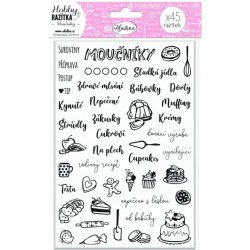 Hobby
RAZÍTKA
Moučníky
Aladine
x45
razítek
SUROVINY
MOUČNÍKY
PŘÍPRAVA
POSTUP
Sladká jídla
TIP
Zdravé mlsání
Bábovky
Dorty
Kynuté
Nepečené
Pudinky
Muffiny
Štrúdly
Zákusky
Koláče
Krémy
Cukroví
domácí výroba
Na plech
Cupcakes
vynikající
rodinný recept
Testa
napečeno s láskou
od babičky